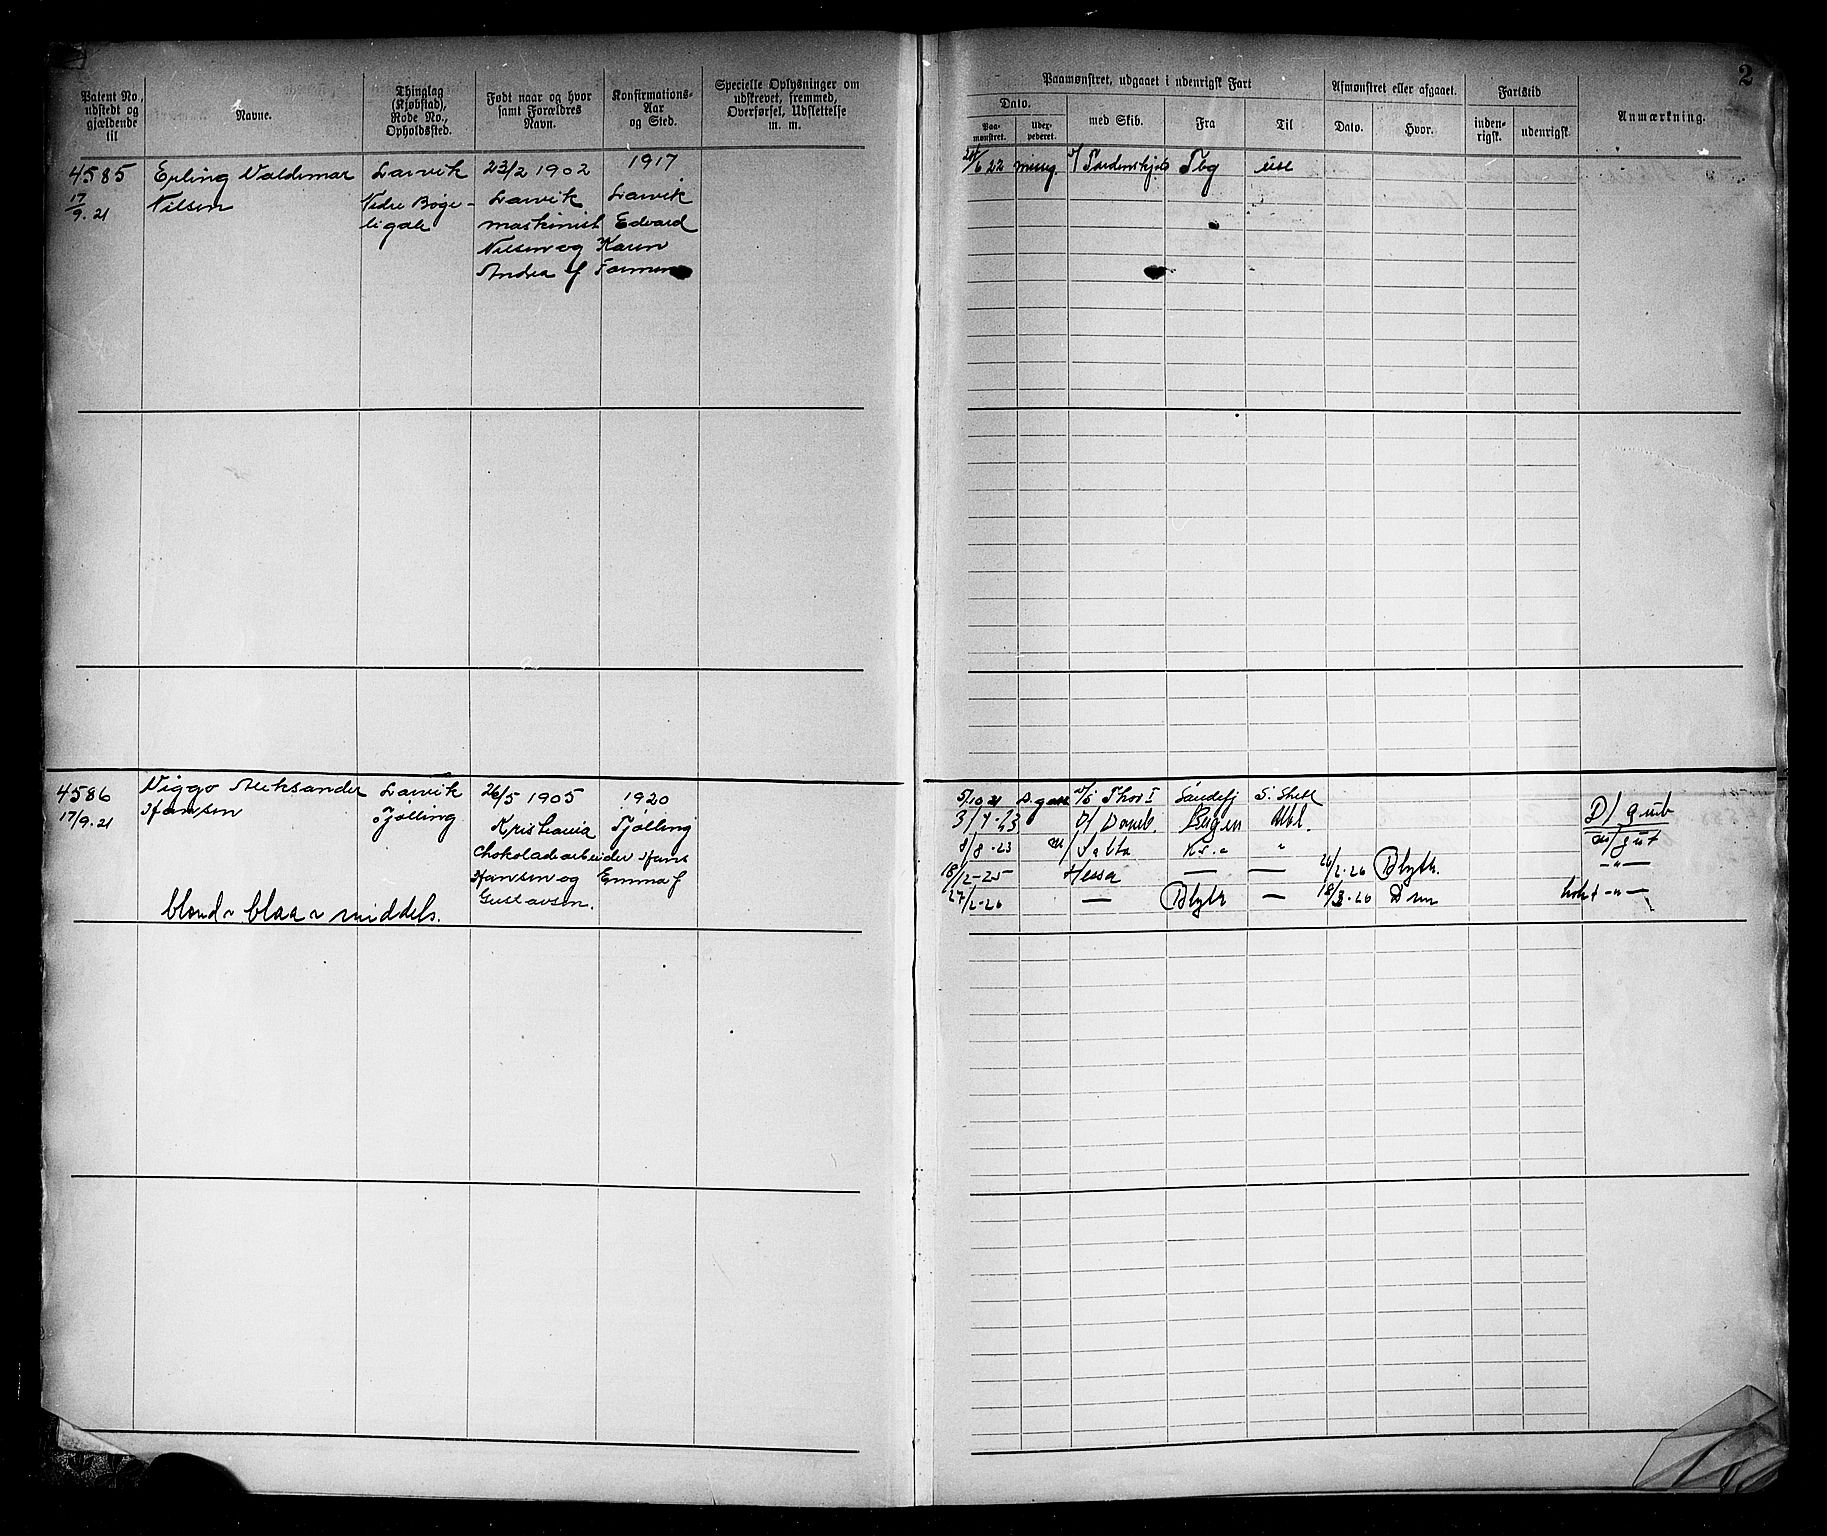 2
Patent No., udstedt og gjældende til
Navne.
Thinglag (Kjøbstad), Rode No., Opholdssted.
Født naar og hvor samt Forældres Navn.
Konfirmations-Aar og Sted.
Specielle Oplysninger om udskrevet, fremmed, Overførsel, Udslettelse m. m.
Paamønstret, udgaaet i udenrigsk Fart
Afmønstret eller afgaaet.
Fartstid
Anmærkning.
Dato.
med Skib.
Fra
Til
Dato.
Hvor.
inden-rigsk.
udenrigsk
Paa-mønstret.
Uder-pederet.
4585
17/9.21
Erling Valdemar
Nilsen
Larvik
Nedre Bøge-
ligade
23/2 1902
1917
Larvik
Larvik
maskinist Edvard
Nilsen og Karen
Andrea f
24/6 22
Tordenskjold
Tbg
use
4586
17/9.21
Viggo Aleksander
Hansen
Larvik
Tjølling
26/5 1905
1920
Kristiania Tjølling
Chokoladearbeider Hans
Hansen og Emma f
Gustavsen.
blond " blaa " middels.
5/10 21
D. gast
Thor I
Sandefj
S. Shetl
3/4-23
D/
Bergen
8/8-23
Salta
"
18/12-25
Hessa
—
—
26/2-26
Blyth.
27/2-26
—
Blyth
—
18/3-26
Drm
D/ gub
gut
—"—
kokk —"—